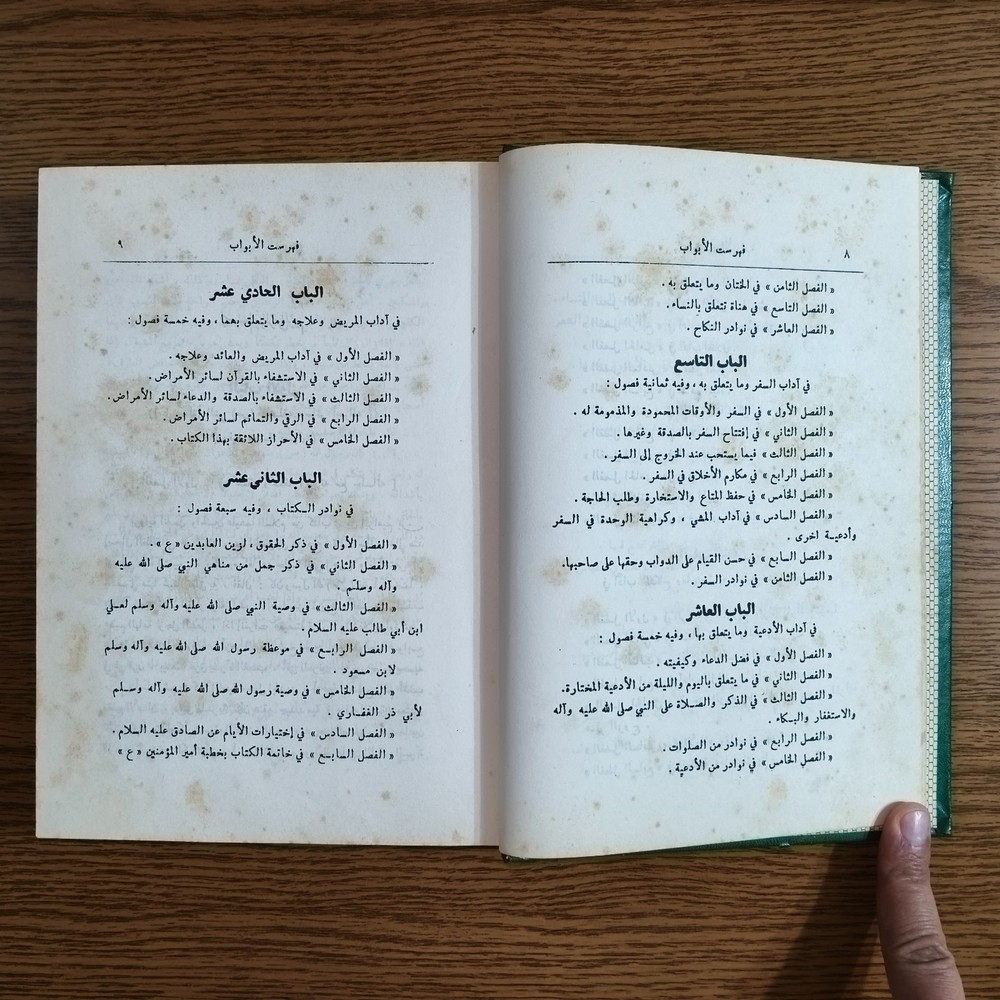 فهرست الأبواب ٨
« الفصل الثامن » في الختان وما يتعلق به .
« الفصل التاسع » في هناة تتعلق بالنساء .
« الفصل العاشر » في نوادر النكاح .
الباب التاسع
في آداب السفر وما يتعلق به ، وفيه ثمانية فصول :
« الفصل الأول » في السفر والأوقات المحمودة والمذمومة له .
« الفصل الثاني » في إفتتاح السفر بالصدقة وغيرها .
« الفصل الثالث » فيما يستحب عند الخروج إلى السفر .
« الفصل الرابع » في مكارم الأخلاق في السفر .
« الفصل الخامس » في حفظ المتاع والاستخارة وطلب الحاجة .
« الفصل السادس » في آداب المشي ، وكراهية الوحدة في السفر
وأدعيـة اخرى .
« الفصل السابع » في حسن القيام على الدواب وحقها على صاحبها.
« الفصل الثامن » في نوادر السفر .
الباب العاشر
في آداب الأدعية وما يتعلق بها ، وفيه خمسة فصول :
« الفصل الأول » في فضل الدعاء وكيفيته .
« الفصل الثاني » في ما يتعلق باليوم والليلة من الأدعية المختارة.
« الفصل الثالث » في الذكر والصـلاة على النبي صلى الله عليه وآله
والاستغفار والبـكاء .
« الفصل الرابع » في نوادر من الصلوات .
« الفصل الخامس » في نوادر من الأدعية .
فهرست الأبواب ٩
الباب الحادي عشر
في آداب المريض وعلاجه وما يتعلق بهما ، وفيه خمسة فصول :
« الفصل الأول » في آداب المريض والعائد وعلاجه .
« الفصل الثاني » في الاستشفاء بالقرآن لسائر الأمراض .
« الفصل الثالث » في الاستشفاء بالصدقة والدعاء لسائر الأمراض.
« الفصل الرابع » في الرقي والتمائم لسائر الأمراض .
« الفصل الخامس » في الأحراز اللائقة بهذا الكتاب .
الباب الثاني عشر
في نوادر السـكتاب ، وفيه سبعة فصول :
« الفصل الأول » في ذكر الحقوق ، لزين العابدين « ع » .
« الفصل الثاني » في ذكر جمل من مناهي النبي صلى الله عليه
وآله وسلـّم .
« الفصل الثالث » في وصية النبي صلى الله عليه وآله وسلم لعـلي
ابن أبي طالب عليه السـلام .
« الفصل الرابـع » في موعظة رسول الله صلى الله عليه وآله وسلم
لابن مسعود .
« الفصل الخامس » في وصية رسول الله صلى الله عليه وآله وسـلم
لأبي ذر الغفـاري .
« الفصل السادس » في إختيارات الأيام عن الصادق عليه السلام .
« الفصل السابـع » في خاتمة الكتاب بخطبة أمير المؤمنين « ع »